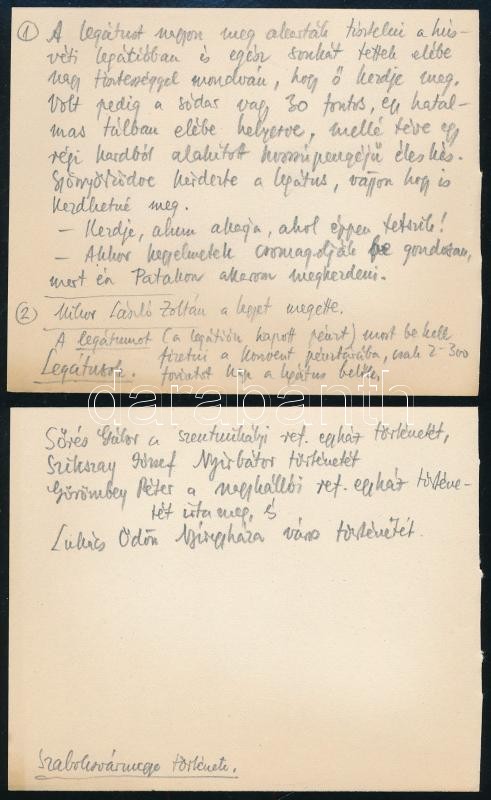 ① A legátust nagyon meg akarták tisztelni a hús-
véti legátióban is egész sonkát tettek elébe
nagy tisztességgel mondván, hogy ő kezdje meg.
Volt pedig a sódar vagy 30 fontos, egy hatal-
mas tálban elébe helyezve, mellé téve egy
régi kardból alakított hosszúpengéjű éles kés.
Gyönyörködve kérdezte a legátus, vajjon hogy is
kezdhetné meg.
- Kezdje, ahun akarja, ahol éppen tetszik!
- Akkor kegyelmetek csomagolják be gondosan,
mert én Patakon akarom megkezdeni.
② Mikor László Zoltán a hegyet megette.
A legátumot (a legátión kapott pénzt) most be kell
fizetni a konvent pénztárába, csak 2-300
forintot kap a legátus belőle.
Legátusok.
darabanth
Sőrés Gábor a szentmihályi ref. egyház történetét,
Szikszay József Nyírbátor történetét
Görömbey Péter a nagykállói ref. egyház történe-
tét írta meg, és
Lukács Ödön Nyíregyháza város történetét.
Szabolcsvármegye története.